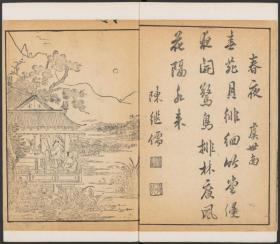 春夜 虞世南
春苑月徘徊竹堂侵
夜開驚鳥排林度風
花隔水來
陳繼儒